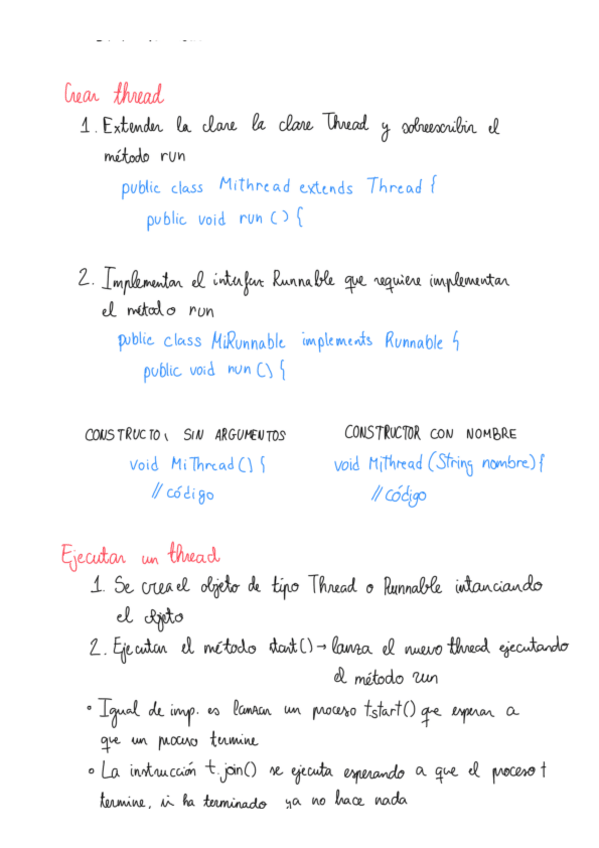 Crear thread
1. Extender la clare la clare Thread y sobreescribir el
método run
public class Mithread extends Thread {
public void run () {
2. Implementar el interfaz Runnable que requiere implementar
el método run
public class MiRunnable implements Runnable {
public void run () {
CONSTRUCTO SIN ARGUMENTOS
void MiThread () {
// código
CONSTRUCTOR CON NOMBRE
void MiThread (String nombre) {
// código
Ejecutar un thread
1. Se crea el objeto de tipo Thread o Runnable intanciando
el objeto
2. Ejecutar el método start() → lanza el nuevo thread ejecutando
el método run
• Igual de imp. es lanzar un proceso t.start() que esperar a
que un proceso termine
• La instrucción t.join() se ejecuta esperando a que el proceso t
termine, si ha terminado ya no hace nada